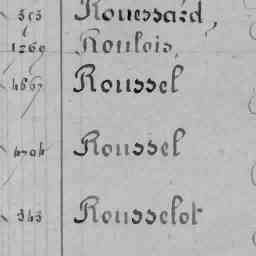 505 Rouessard,
1269 Roulois,
4667 Roussel
4704 Roussel
343 Rousselot